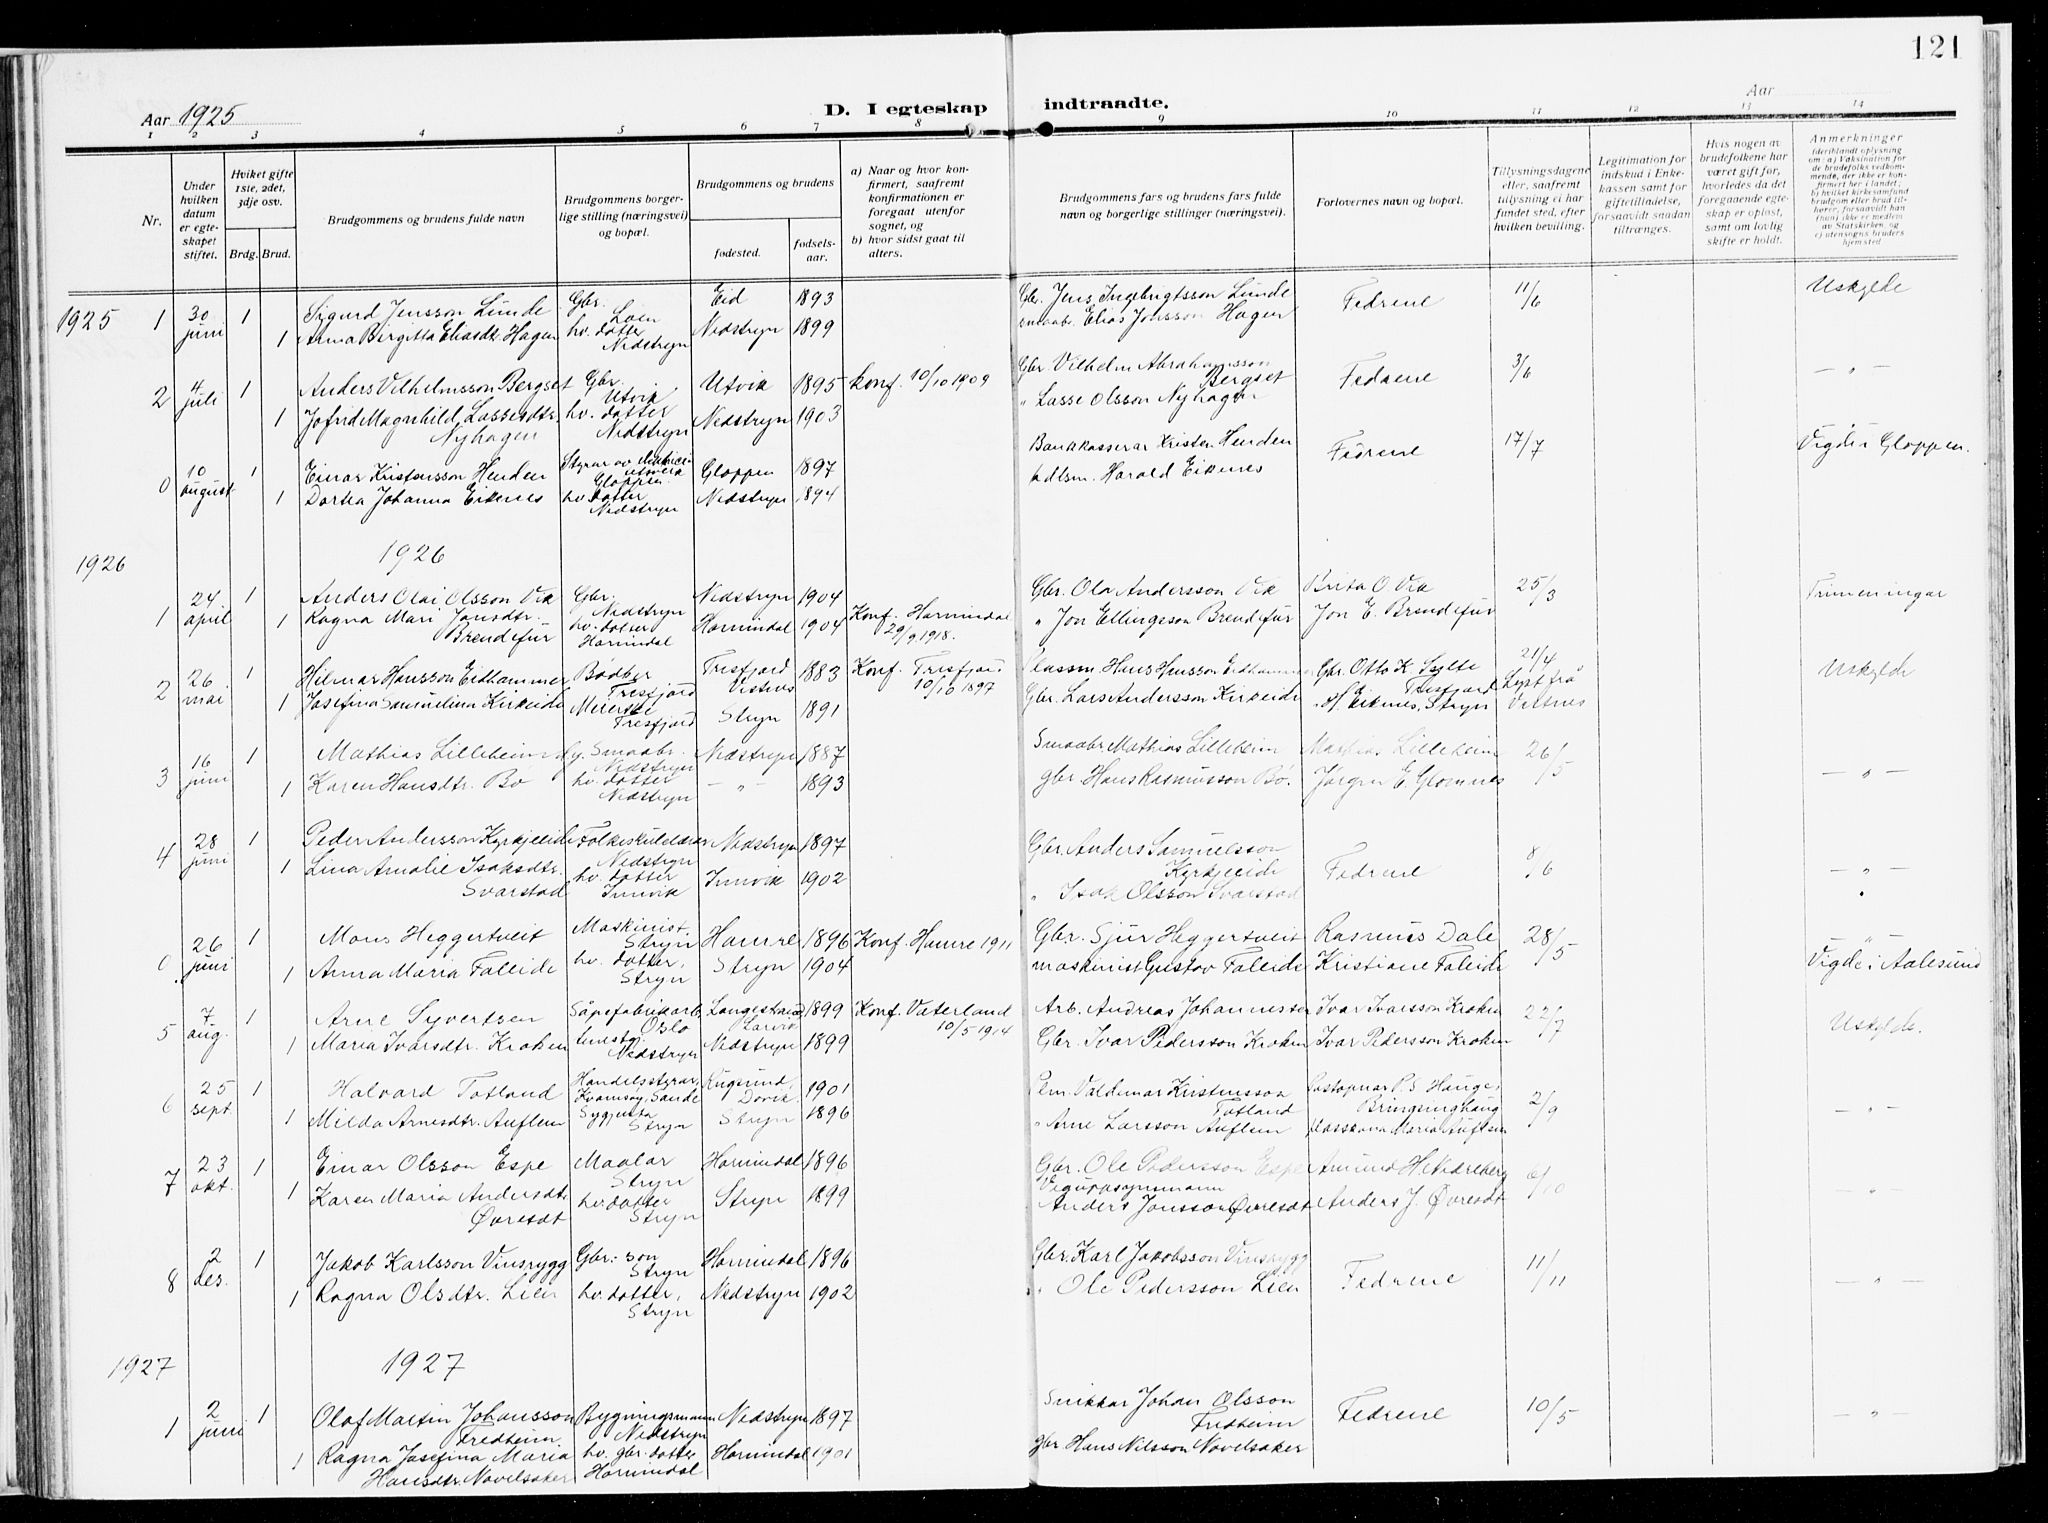 121
Aar 1925
D. I egteskap indtraadte.
Aar
1 2 3 4 5 6 7 8 9 10 11 12 13 14
Nr.
Under hvilken datum er egteskapet stiftet.
Hviket gifte 1ste, 2det, 3dje osv.
Brdg. Brud.
Brudgommens og brudens fulde navn
Brudgommens borgerlige stilling (næringsvei) og bopæl.
Brudgommens og brudens
fødested.
fødselsaar.
a) Naar og hvor konfirmert, saafremt konfirmationen er foregaat utenfor sognet, og
b) hvor sidst gaat til alters.
Brudgommens fars og brudens fars fulde navn og borgerlige stillinger (næringsvei).
Forlovernes navn og bopæl.
Tillysningsdagene eller, saafremt tillysning ei har fundet sted, efter hvilken bevilling.
Legitimation for indskud i Enkekassen samt for giftetilladelse, forsaavidt saadan tiltrænges.
Hvis nogen av brudefolkene har været gift før, hvorledes da det foregaaende egteskap er opløst, samt om lovlig skifte er holdt.
Anmerkninger (deriblandt oplysning om: a) Vaksination for de brudefolks vedkommende, der ikke er konfirmert her i landet; b) hvilket kirkesamfund brudgom eller brud tilhører, forsaavidt han (hun) ikke er medlem av Statskirken, og c) utensogns bruders hjemsted
1925 1 30 juni 1 Sigurd Jensson Lunde Gbr. Loen Eid 1893 Gbr. Jens Ingebrigtsson Lunde Fedrene 11/6 Uskylde
1 Anna Birgitta Eliasdtr. Hagen hv. dotter Nedstryn Nedstryn 1899 smaabr. Elias Jonsson Hagen
2 4 juli 1 Anders Vilhelmsson Bergset Gbr. Utvik Utvik 1895 konf. 10/10 1909 Gbr. Vilhelm Abrahamsson Bergset Fedrene 3/6 — " —
1 Jofrid Magnhild Lassesdtr. Nyhagen hv. dotter Nedstryn Nedstryn 1903 " Lasse Olsson Nyhagen
0 10 august 1 Einar Kristensson Henden Styrar av Gloppen Gloppen 1897 Bankkasserar Kristen Henden Fedrene 17/7 Vigde i Gloppen.
1 Dortea Johanna Eikenes hv. dotter Nedstryn Nedstryn 1894 Harald Eikenes
1926 1926
1 24 april 1 Anders Olai Olsson Vik Gbr. Nedstryn Nedstryn 1904 Gbr. Ola Andersson Vik Brita O Vik 25/3 Trimeningar
1 Ragna Mari Jonsdtr. Brendefur hv. dotter Hornindal Hornindal 1904 Konf. Hornindal 29/9 1918. " Jon Ellingsson Brendefur Jon E. Brendefur
2 26 mai 1 Hilmar Hansson Eidhammer Bødker Tresfjord Tresfjord Vestnes 1883 Konf. Tresfjord 10/10 1897 Plassm. Hans Hansson Eidhammer Gbr. Otto K Sylte Tresfjord 21/4 Lyst frå Vestnes Uskylde
1 Josefina Samueline Kirkeide Meierske Tresfjord Stryn 1891 Gbr. Lars Andersson Kirkeide Eikenes, Stryn
3 16 juni 1 Mathias Lilleheim Smaabr. Nedstryn Nedstryn 1887 Smaabr Mathias Lilleheim Mathias Lilleheim 26/5 — " —
1 Karen Hansdtr. Bø hv. dotter Nedstryn — " — 1893 gbr Hans Rasmusson Bø. Jørgen E. Glomnes
4 28 juni 1 Peder Andersson Kyrkjeeide Folkeskulelærar Nedstryn Nedstryn 1897 Gbr. Anders Samuelsson Kyrkjeeide Fedrene 8/6 — " —
1 Lina Amalie Isaksdtr. Svarstad hv. dotter Innvik Innvik 1902 " Isak Olsson Svarstad
0 26 juni 1 Mons Heggertveit Maskinist, Stryn Hamre 1896 Konf. Hamre 1911 Gbr. Sjur Heggertveit Rasmus Dale 28/5 — " — Vigde i Aalesund
1 Anna Maria Faleide hv. dotter, Stryn Stryn 1904 maskinist Gustav Faleide Kristiane Faleide
5 7 aug. 1 Arne Syvertsen Såpefabrikarb. Oslo Langestrand Larvik 1899 Konf. Vaterland 10/5 1914 Arb. Andreas Johannessen Ivar Ivarsson Kroken 22/7 Uskylde.
1 Maria Ivarsdtr. Kroken tenestg. Nedstryn Nedstryn 1899 Gbr. Ivar Pedersson Kroken Ivar Pedersson Kroken
6 25 sept. 1 Halvard Totland Handelsstyrar, Kvamsøy, Sande Rugsund, Davik. 1901 Valdemar Kristensson Totland Postopnar P. S Hauge, Bringsinghaug 2/9 — " —
1 Milda Arnesdtr. Auflem Sygjuska Stryn Stryn 1896 " Arne Larsson Auflem plasskona Maria Auflem
7 23 okt. 1 Einar Olsson Espe Maalar Stryn Hornindal 1896 Gbr. Ole Pedersson Espe Amund H. Nedreberg 6/10 — " —
1 Karen Maria Andersdtr. Øvresdt hv. dotter Stryn Stryn 1899 Anders Jonsson Øvresdt Anders J. Øvresdt
8 2 des. 1 Jakob Karlsson Vinsrygg Gbr. son Stryn Hornindal 1896 Gbr. Karl Jakobsson Vinsrygg Fedrene 11/11 — " —
1 Ragna Olsdtr. Lien hv. dotter, Stryn Nedstryn 1902 " Ole Pedersson Lien
1927 1927
1 2 juni 1 Olaf Martin Johansson Fredheim Bygningsmann Nedstryn Nedstryn 1897 Snikkar Johan Olsson Fredheim Fedrene 10/5 — " —
1 Ragna Josefina Maria Hansdtr. Navelsaker hv. gbr. dotter Hornindal Hornindal 1901 gbr Hans Nilsson Navelsaker